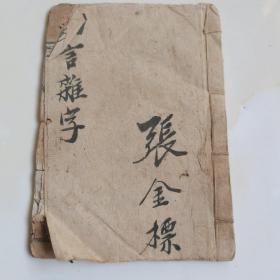 言雜字
張金標